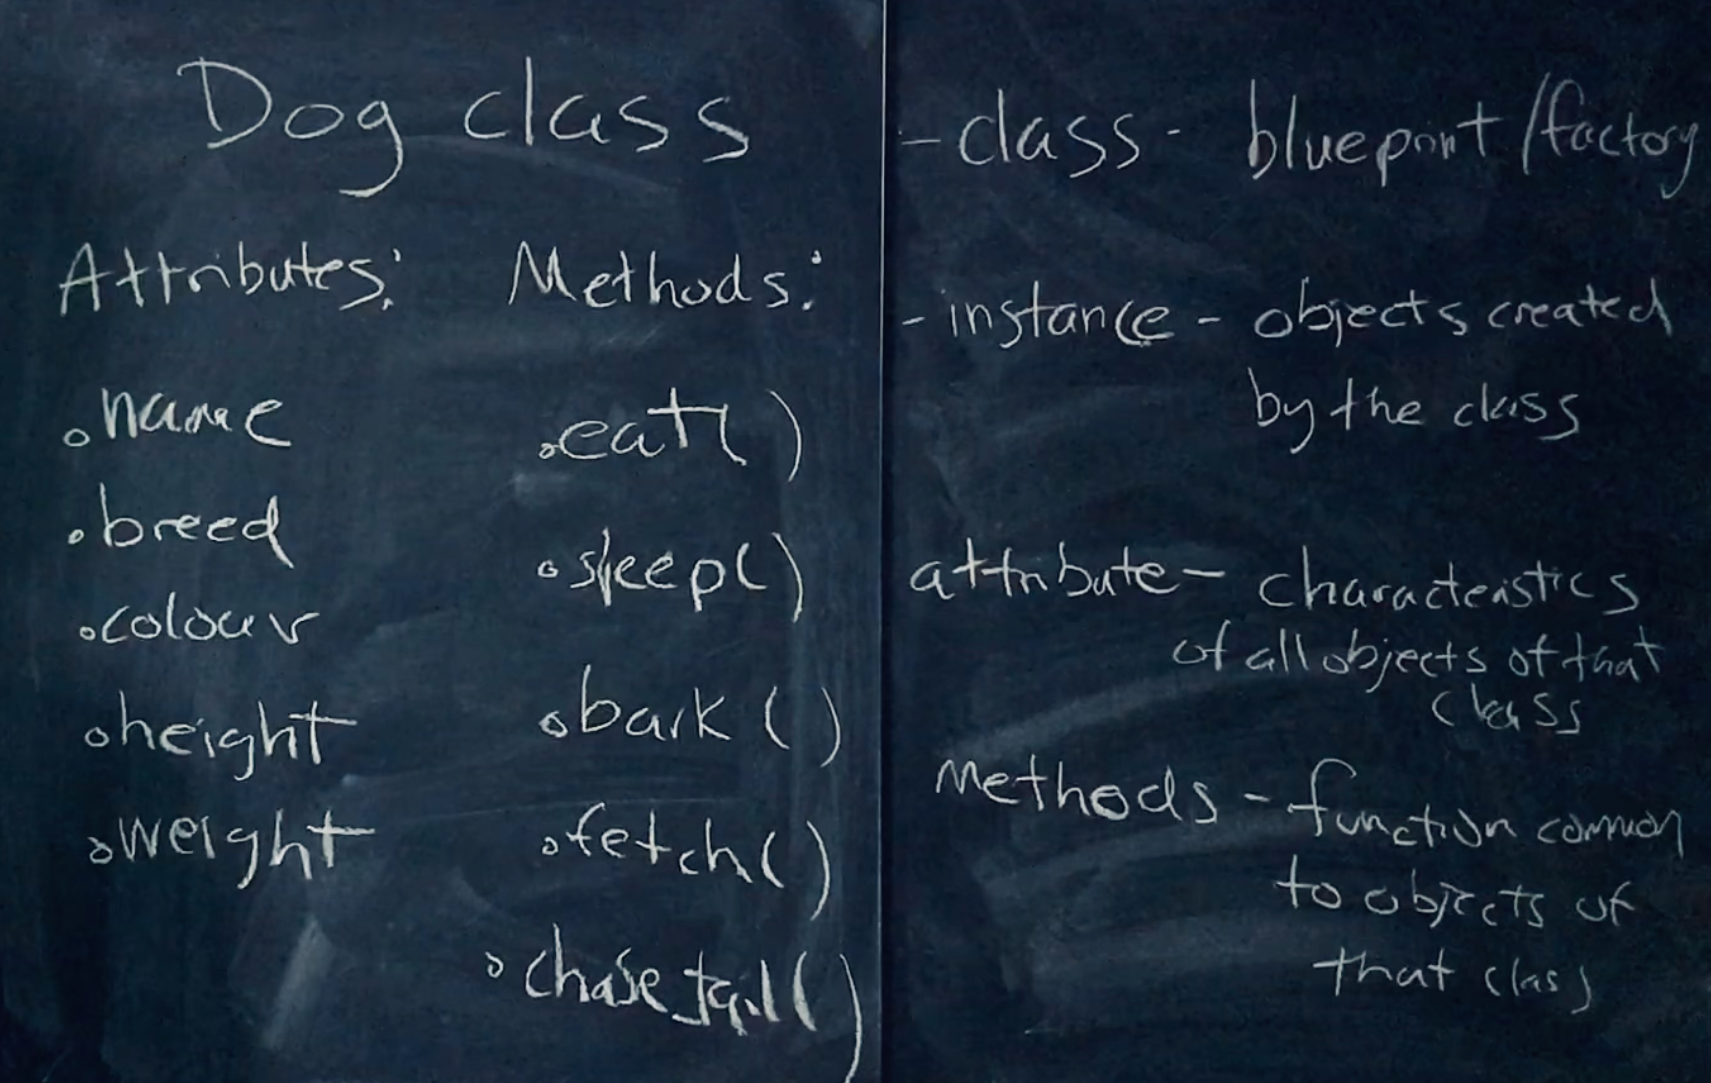 Dog class
Attributes:
Methods:
name
breed
colour
height
weight
eat()
sleep()
bark()
fetch()
chase_tail()
- class - blueprint/factory
- instance - objects created
by the class
attribute - characteristics
of all objects of that
class
Methods - function common
to objects of
that class